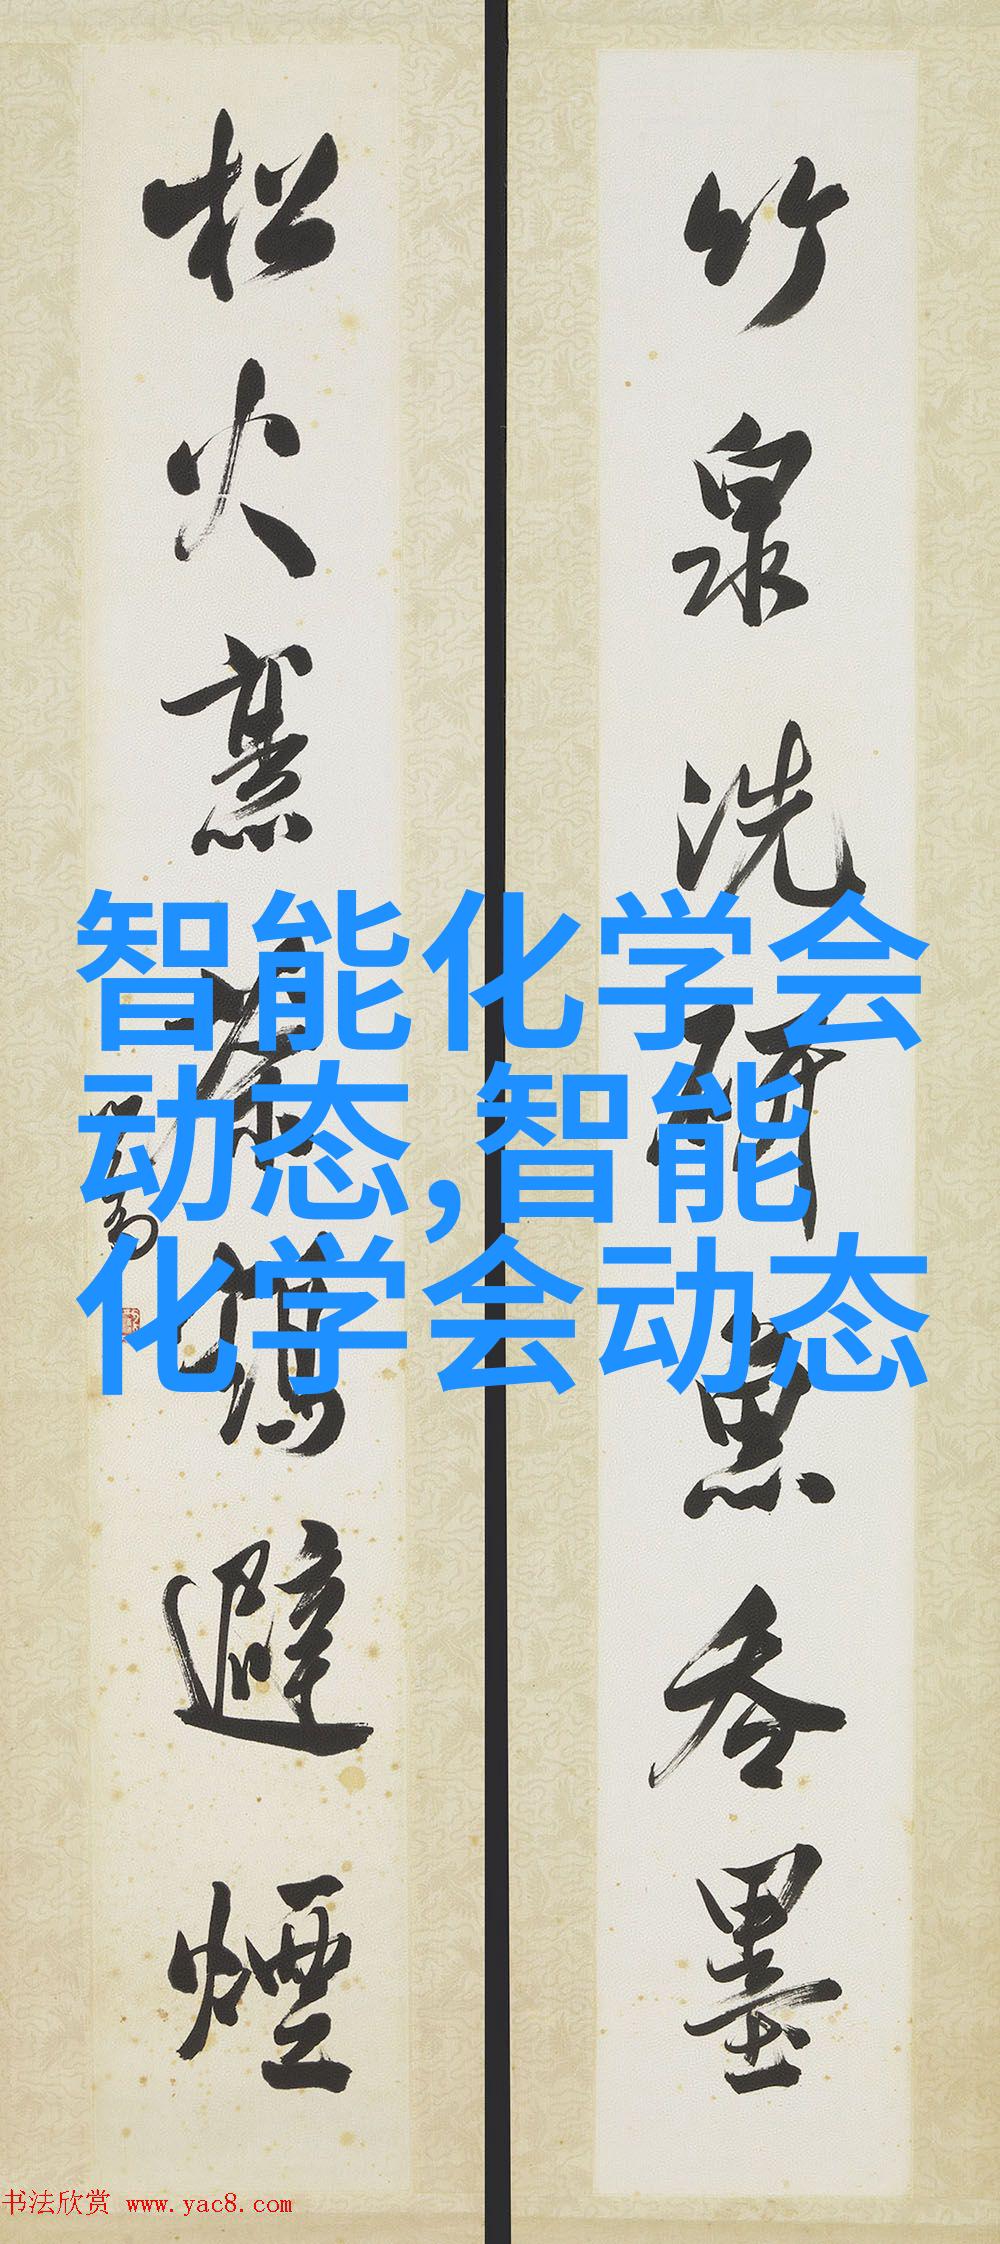 竹泉洗研魚吞墨
松火烹茶鶴避煙
智能化学会
动态,智能
化学会动态
书法欣赏 www.yac8.com